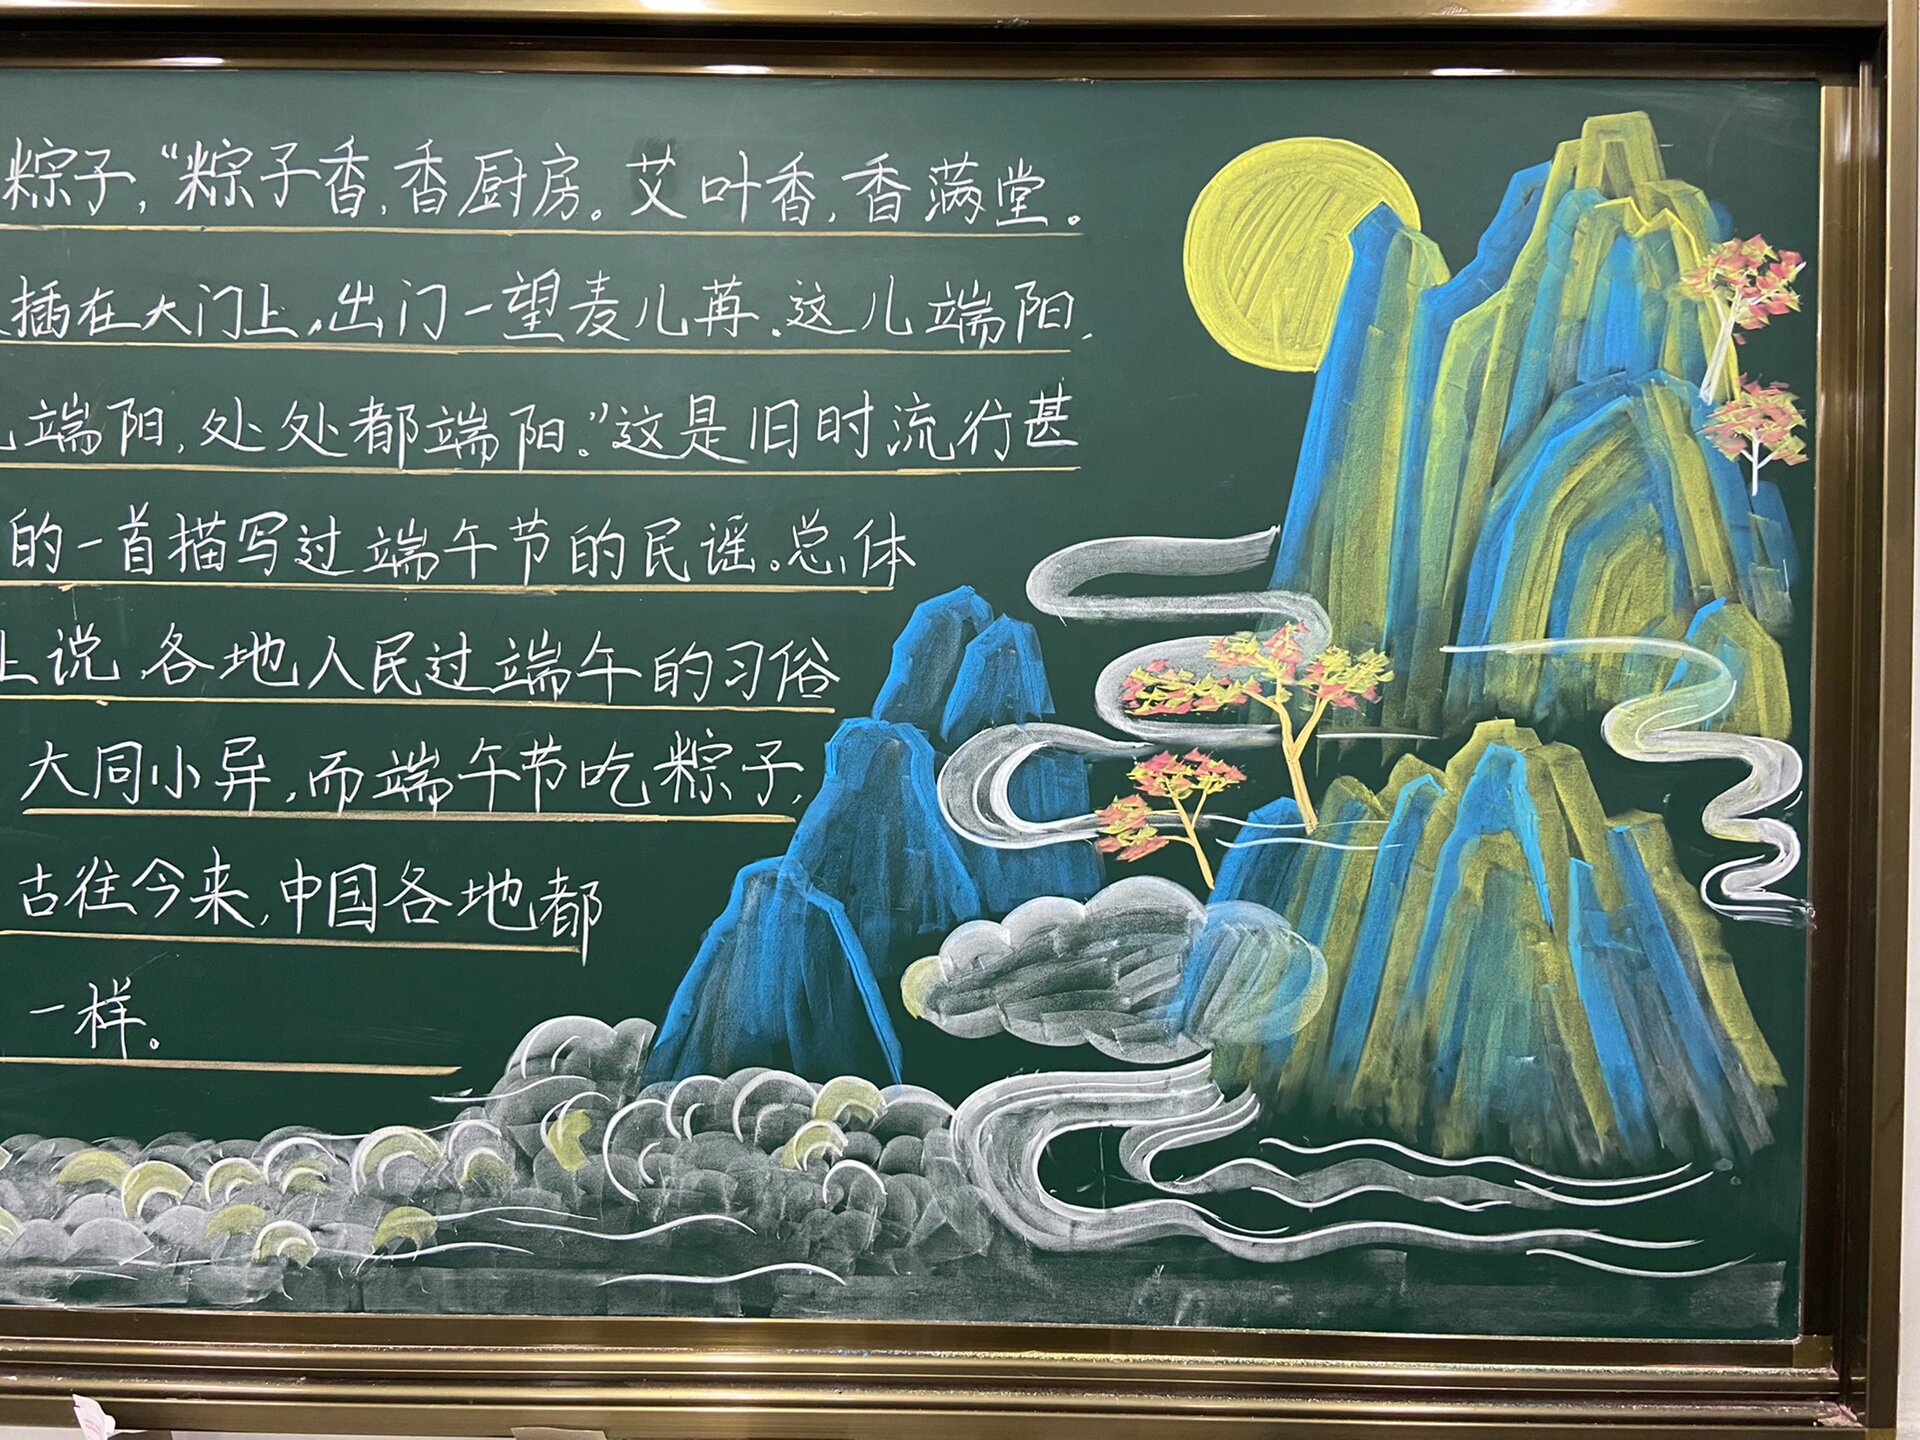 粽子，“粽子香，香厨房。艾叶香，香满堂。
插在大门上，出门一望麦儿苒。这儿端阳，
端阳，处处都端阳。”这是旧时流行甚
的一首描写过端午节的民谣。总体
上说，各地人民过端午的习俗
大同小异，而端午节吃粽子，
古往今来，中国各地都
一样。